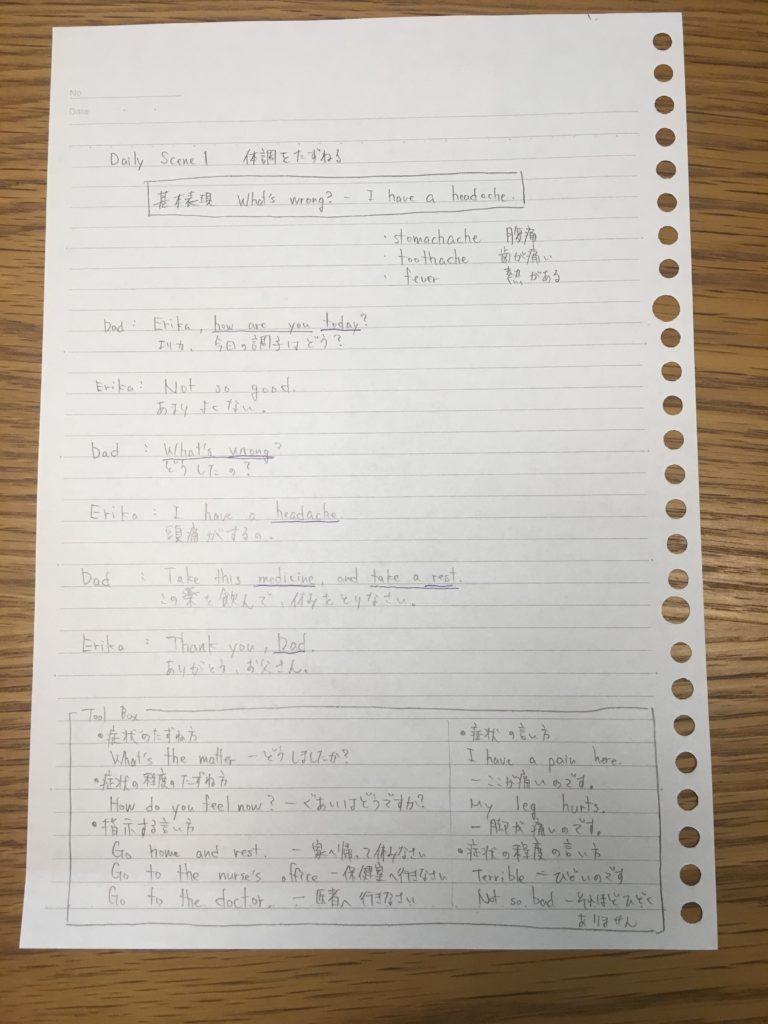 No.
Date
Daily Scene 1 体調をたずねる
基本表現 What's wrong? - I have a headache.
・stomachache 腹痛
・toothache 歯が痛い
・fever 熱がある
Dad : Erika, how are you today?
エリカ、今日の調子はどう?
Erika : Not so good.
あまりよくない。
Dad : What's wrong?
どうしたの?
Erika : I have a headache.
頭痛がするの。
Dad : Take this medicine, and take a rest.
この薬を飲んで、休みをとりなさい。
Erika : Thank you, Dad.
ありがとう、お父さん。
Tool Box
•症状のたずね方
What's the matter ー どうしましたか?
•症状の程度のたずね方
How do you feel now? ー ぐあいはどうですか?
•指示する言い方
Go home and rest. ー 家へ帰って休みなさい
Go to the nurse's office ー 保健室へ行きなさい
Go to the doctor. ー 医者へ行きなさい
•症状の言い方
I have a pain here.
ー ここが痛いのです。
My leg hurts.
ー 脚が痛いのです。
•症状の程度の言い方
Terrible ー ひどいのです
Not so bad ー それほどひどく
ありません